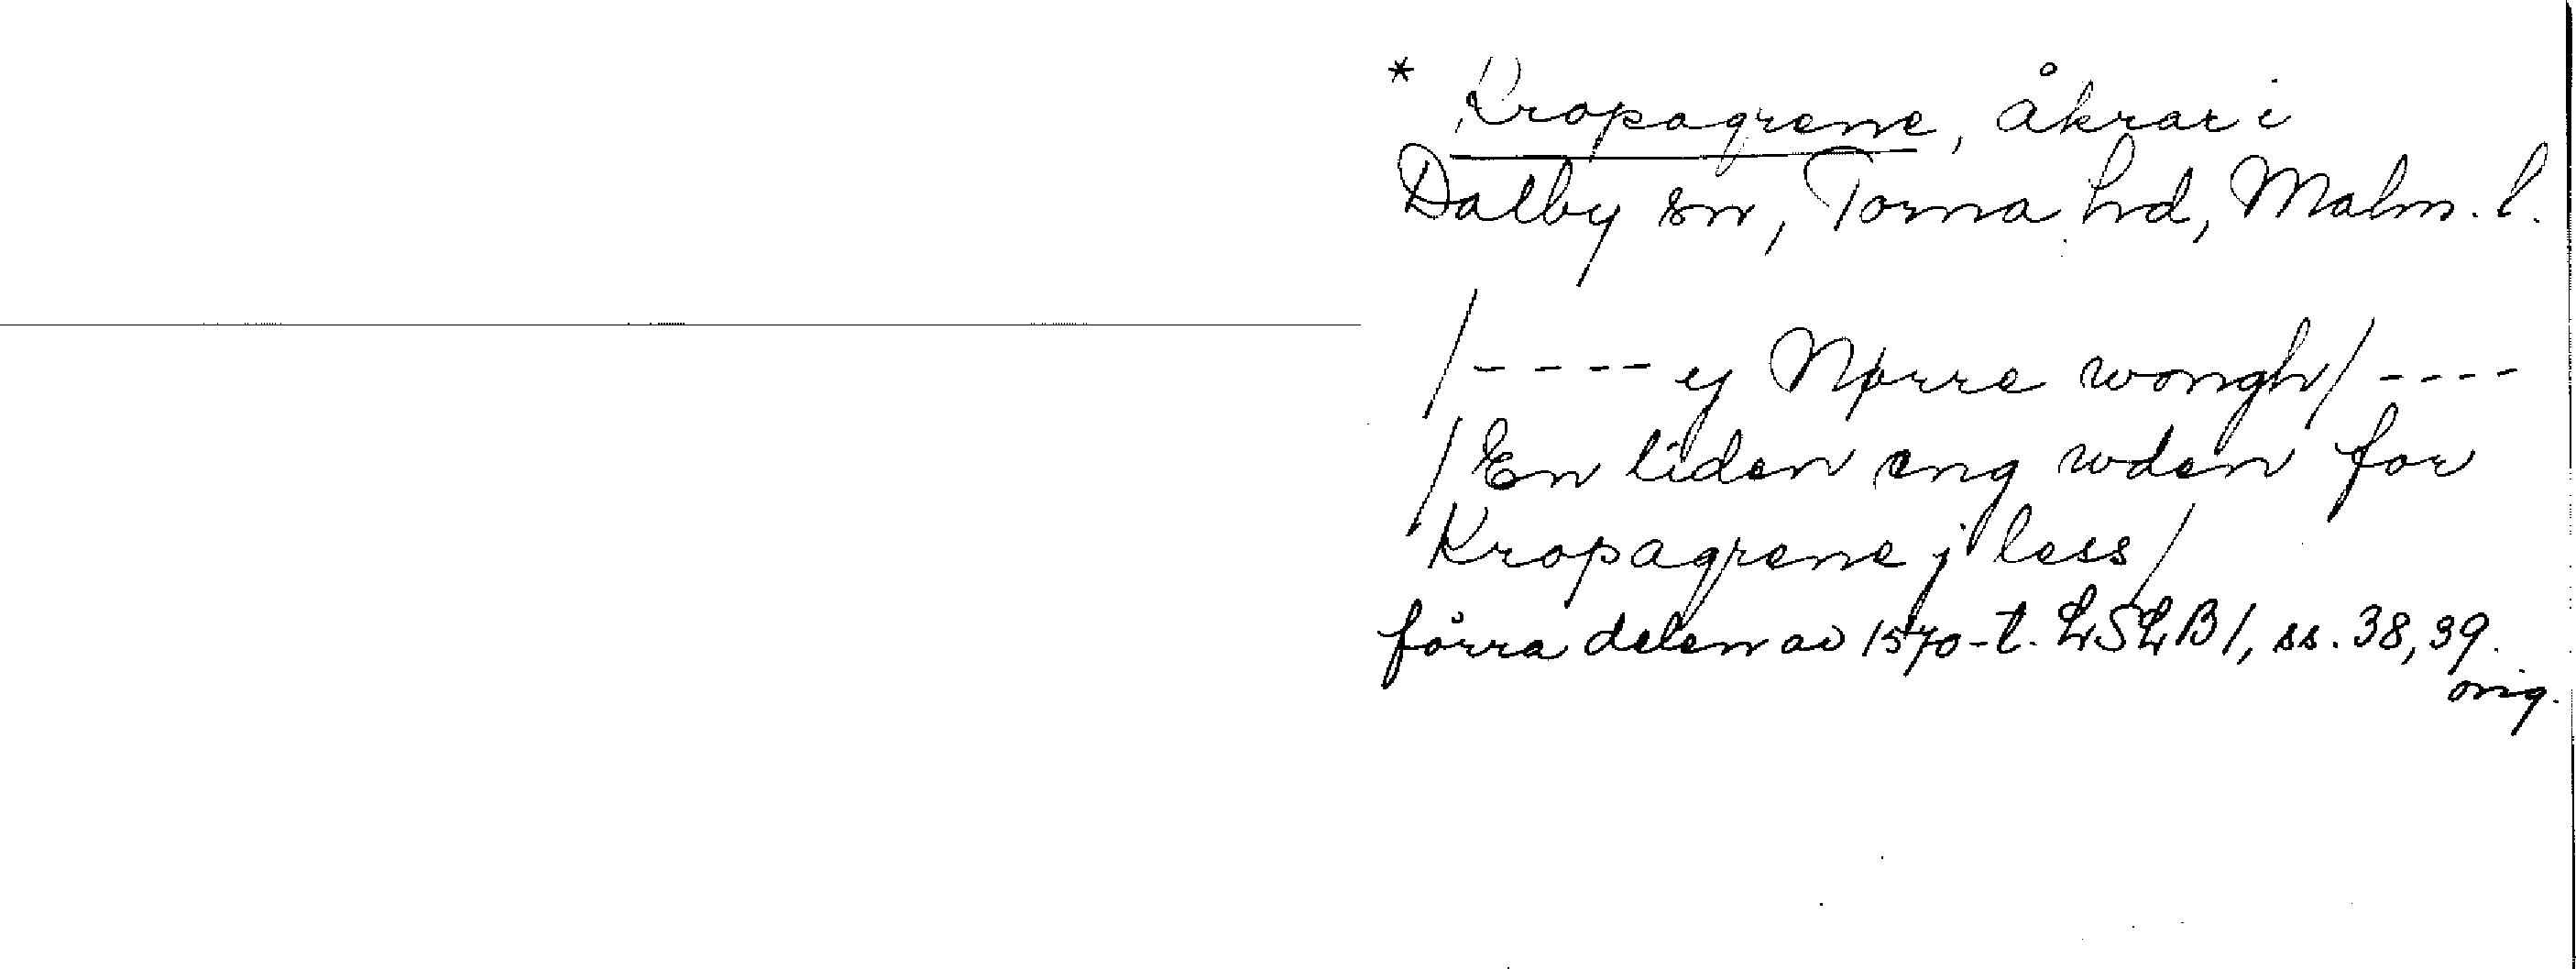 * Kropagrene, åkrar i
Dalby sn, Torna hd, Malm. l.
/---- ej Nørre wongh/ ----
/En liden eng wden for
Kropagrene j less/
förra delen av 1570-t. LSLB 1, ss. 38, 39.
orig.